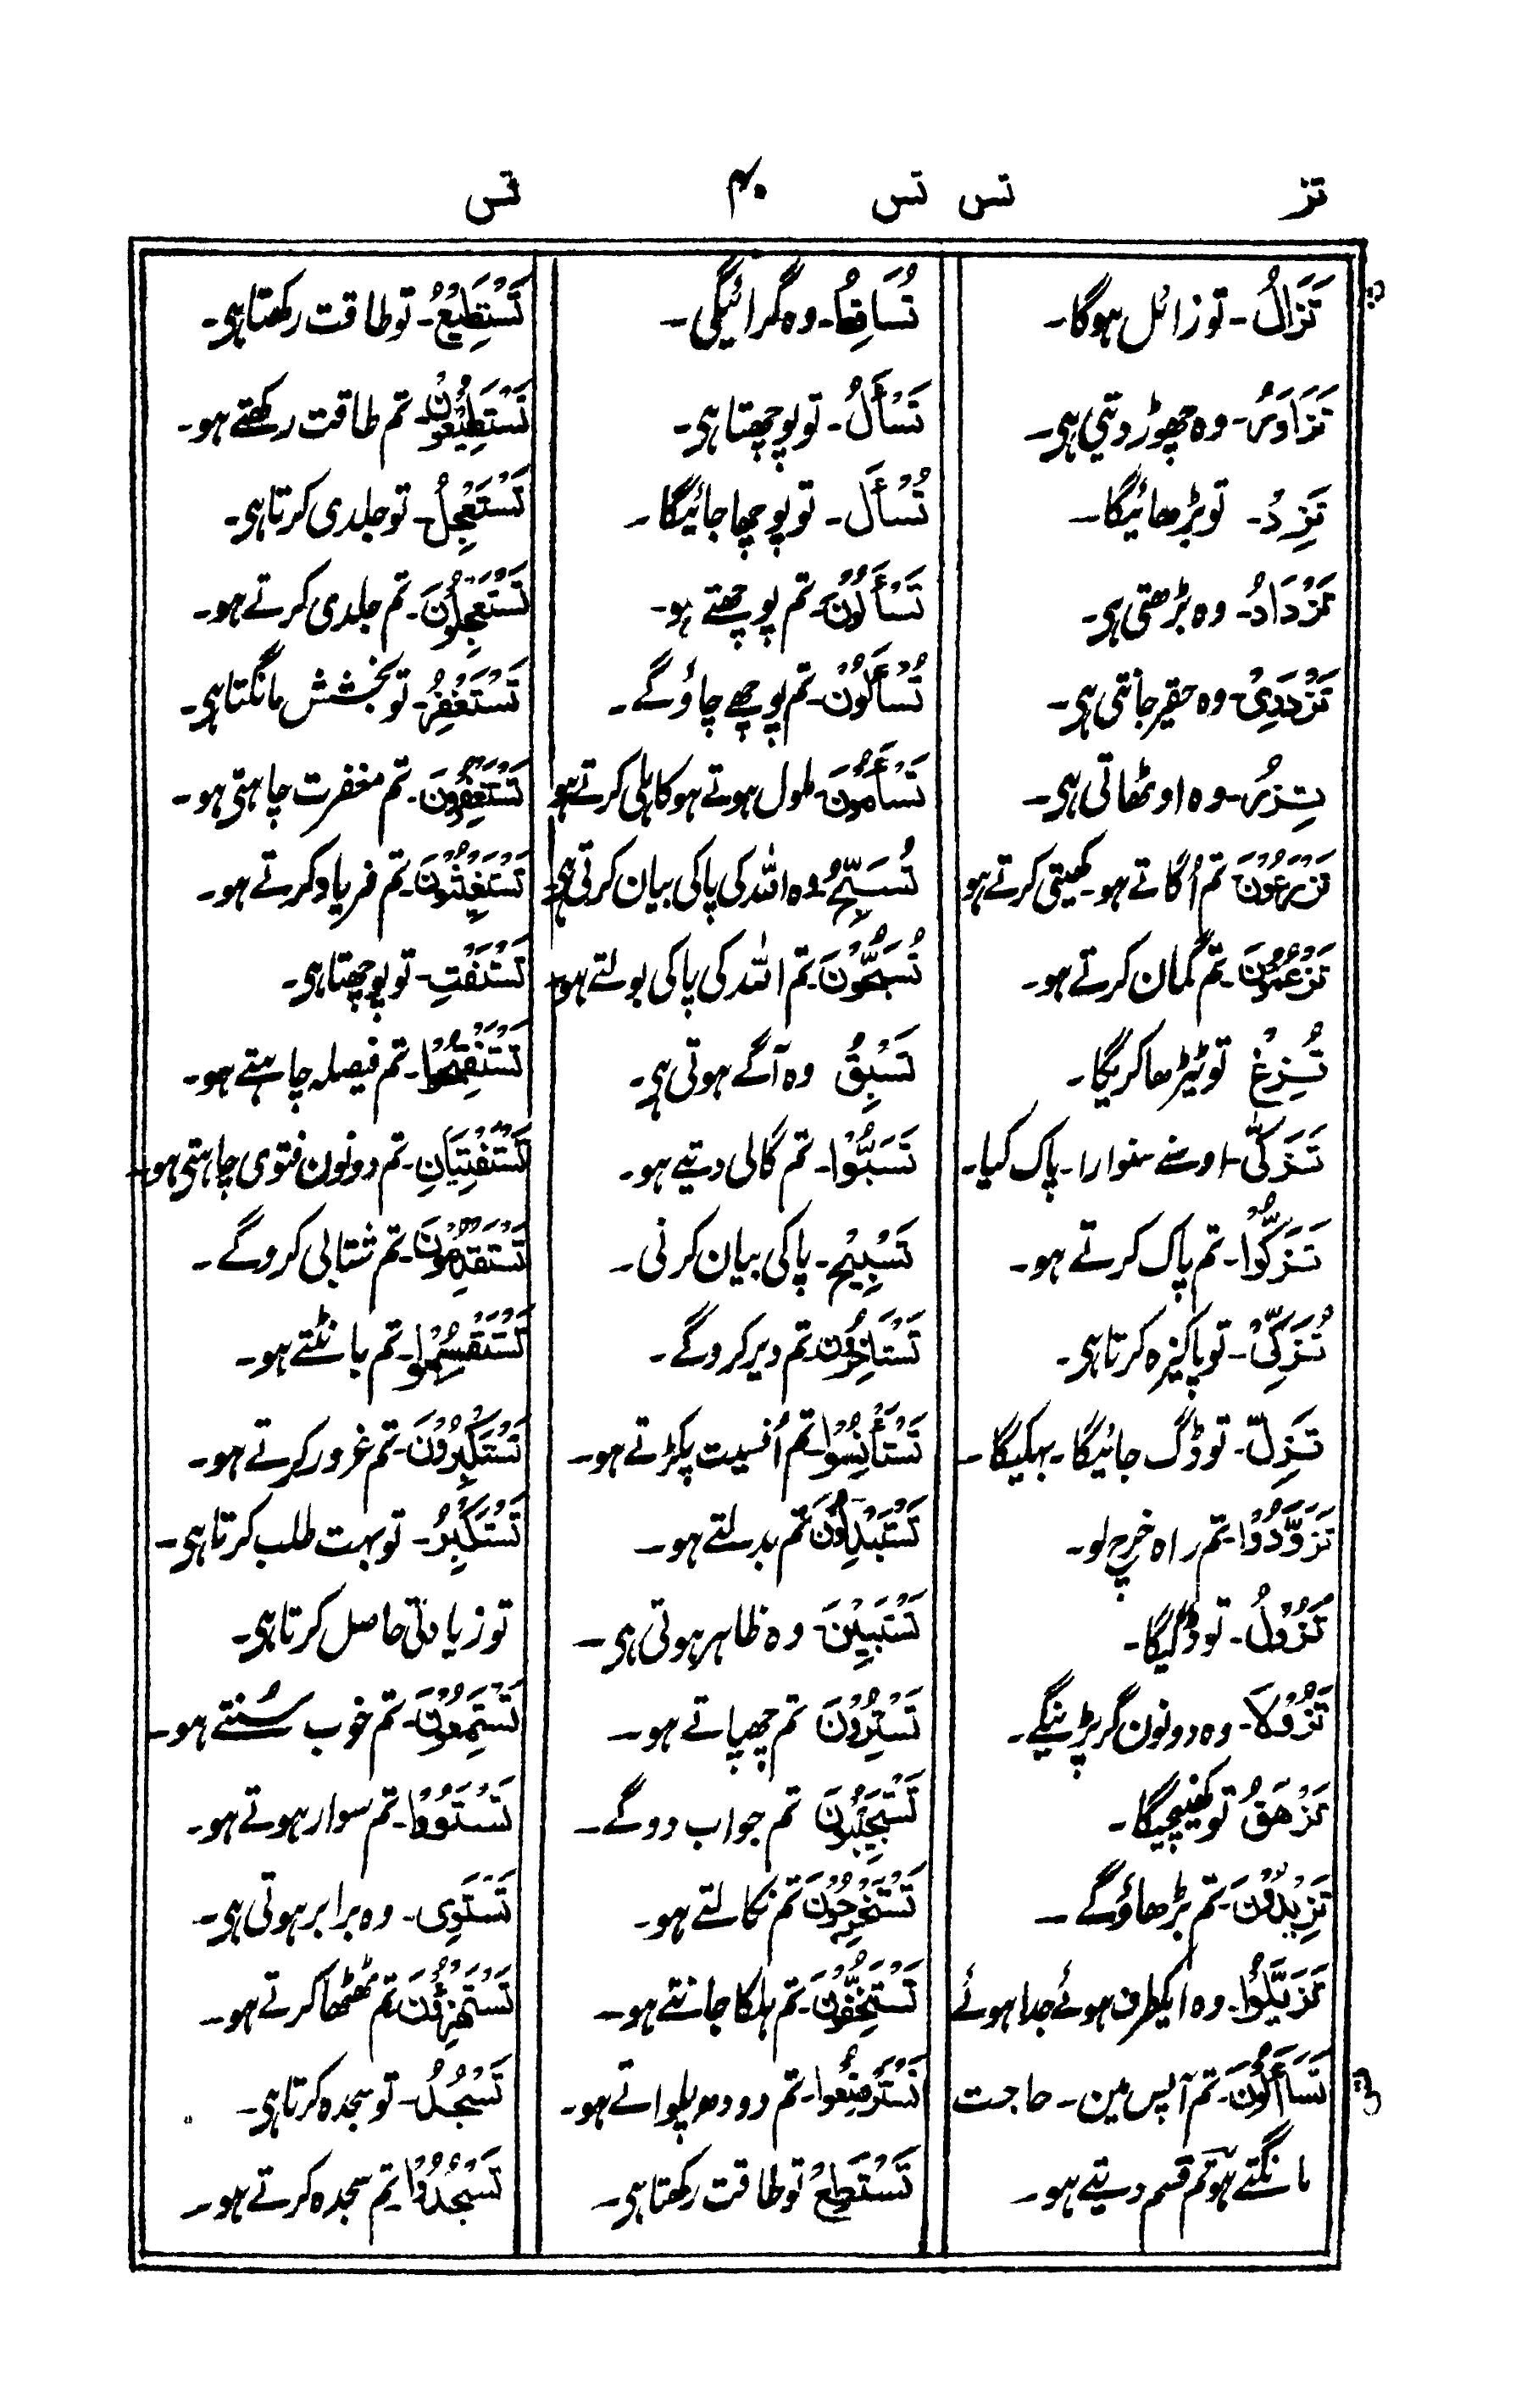 تز تس تس ۴۰ تس
تَزَالُ ـ تو زائل ہوگا ـ
تَزَاوَرُ ـ وہ چھوڑ دیتی ہی ـ
تَزِدُ ـ تو بڑھائیگا ـ
تَزْدَادُ ـ وہ بڑھتی ہی ـ
تَزْدَرِیْ ـ وہ حقیر جانتی ہی ـ
تِزِرُ ـ وہ اوٹھاتی ہی ـ
تَزْرَعُوْنَ تم اُگاتے ہو ـ کھیتی کرتے ہو
تَزْعُمُوْنَ ـ تم گمان کرتے ہو ـ
تُزِغْ تو ٹیڑھا کریگا ـ
تَزَکّٰی ـ اوسنے سنوارا ـ پاک کیا ـ
تَزَکُّوْا ـ تم پاک کرتے ہو ـ
تُزَکِّیْ ـ تو پاکیزہ کرتا ہی ـ
تَزِلَّ ـ تو ڈگ جائیگا ـ بہکیگا ـ
تَزَوَّدُوْا ـ تم راہ خرچ لو ـ
تَزُوْلُ ـ تو ڈگیگا ـ
تَزُوْلَا ـ وہ دونون گر پڑینگے ـ
تَزْهَقُ تو کھنیچیگا ـ
تَزِیْدُوْنَ ـ تم بڑھاؤگے ـ
تَزَیَّلُوْا ـ وہ ایکطرف ہوئے جدا ہوئے
تَسَاءَلُوْنَ ـ تم آپس مین ـ حاجت
مانگتے ہو تم قسم دیتے ہو ـ
تُسَاقِطُ ـ وہ گرائیگی ـ
تَسْأَلُ ـ تو پوچھتا ہی ـ
تُسْأَل ـ تو پوچھا جائیگا ـ
تَسْأَلُوْنَ ـ تم پوچھتے ہو ـ
تُسْأَلُوْنَ ـ تم پوچھے جاؤگے ـ
تَسْأَمُوْنَ ـ ملول ہوتے ہو کاہلی کرتے ہو
تُسَبِّحُ ـ وہ اللہ کی پاکی بیان کرتی ہی ـ
تُسَبِّحُوْنَ ـ تم اللہ کی پاکی بولتے ہو ـ
تَسْبِقُ وہ آگے ہوتی ہی ـ
تَسَبُّوْا ـ تم گالی دیتے ہو ـ
تَسْبِیْحَ ـ پاکی بیان کرنی ـ
تَسْتَاخِرُوْنَ تم دیر کروگے ـ
تَسْتَأْنِسُوْا ـ تم اُنسیت پکڑتے ہو ـ
تَسْتَبْدِلُوْنَ تم بدلتے ہو ـ
تَسْتَبِیْنَ ـ وہ ظاہر ہوتی ہی ـ
تَسْتِرُوْنَ تم چھپاتے ہو ـ
تَسْتَجِیْبُوْنَ تم جواب دوگے ـ
تَسْتَخْرِجُوْنَ تم نکالتے ہو ـ
تَسْتَخِفُّوْنَ ـ تم ہلکا جانتے ہو ـ
تَسْتَرْضِعُوا ـ تم دودھ پلواتے ہو ـ
تَسْتَطِعُ تو طاقت رکھتا ہی ـ
تَسْتَطِیْعُ ـ تو طاقت رکھتا ہی ـ
تَسْتَطِیْعُوْنَ ـ تم طاقت رکھتے ہو ـ
تَسْتَعْجِلُ ـ تو جلدی کرتا ہی ـ
تَسْتَعْجِلُوْنَ ـ تم جلدی کرتے ہو ـ
تَسْتَغْفِرُ ـ تو بخشش مانگتا ہی ـ
تَسْتَغْفِرُوْنَ ـ تم مغفرت چاہتی ہو ـ
تَسْتَغِیْثُوْنَ ـ تم فریاد کرتے ہو ـ
تَسْتَفْتِ ـ تو پوچھتا ہی ـ
تَسْتَفْتِحُوْا ـ تم فیصلہ چاہتے ہو ـ
تَسْتَفْتِیَانِ ـ تم دونون فتوی چاہتی ہو ـ
تَسْتَقْدِمُوْنَ ـ تم شتابی کروگے ـ
تَسْتَقْسِمُوْا ـ تم بانٹتے ہو ـ
تَسْتَکْبِرُوْنَ ـ تم غرور کرتے ہو ـ
تَسْتَکْثِرُ ـ تو بہت طلب کرتا ہی ـ
تو زیادتی حاصل کرتا ہی ـ
تَسْتَمِعُوْنَ ـ تم خوب سُنتے ہو ـ
تَسْتَوُوْا ـ تم سوار ہوتے ہو ـ
تَسْتَوِی ـ وہ برابر ہوتی ہی ـ
تَسْتَهْزِؤُنَ تم ٹھٹھا کرتے ہو ـ
تَسْجُدُ ـ تو سجدہ کرتا ہی ـ
تَسْجُدُوْا تم سجدہ کرتے ہو ـ